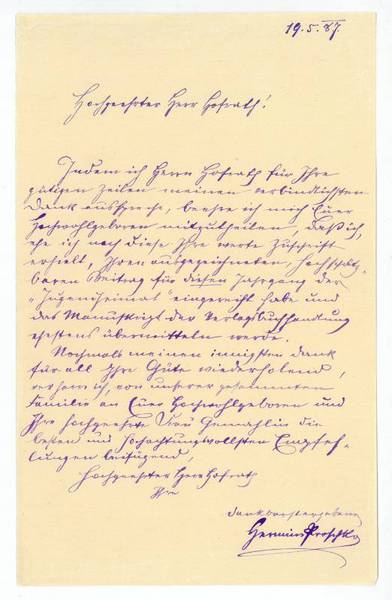 19.5.87.
Hochgeehrter Herr Hofrath!
Indem ich Herrn Hofrath für Ihre
gütigen Zeilen meinen verbindlichsten
Dank ausspreche, beehre ich mich Euer
Hochwohlgeboren mitzutheilen, daß ich,
ehe ich noch diese Ihre werte Zuschrift
erhielt, Ihren ausgezeichneten, hochschätz-
baren Beitrag für diesen Jahrgang der
"Jugendheimat" eingereiht habe und
das Manuskript der Verlagsbuchhandlung
ehestens übermitteln werde.
Nochmals meinen innigsten Dank
für all Ihre Güte wiederholend,
ich, von unserer gesammten
Familie an Euer Hochwohlgeboren und
Ihre hochgeehrte Frau Gemahlin die
besten und hochachtungvollsten Empfeh-
lungen beifügend,
Hochgeehrter Herr Hofrath
Ihre
dankbarst ergebene
Hermine Proschko